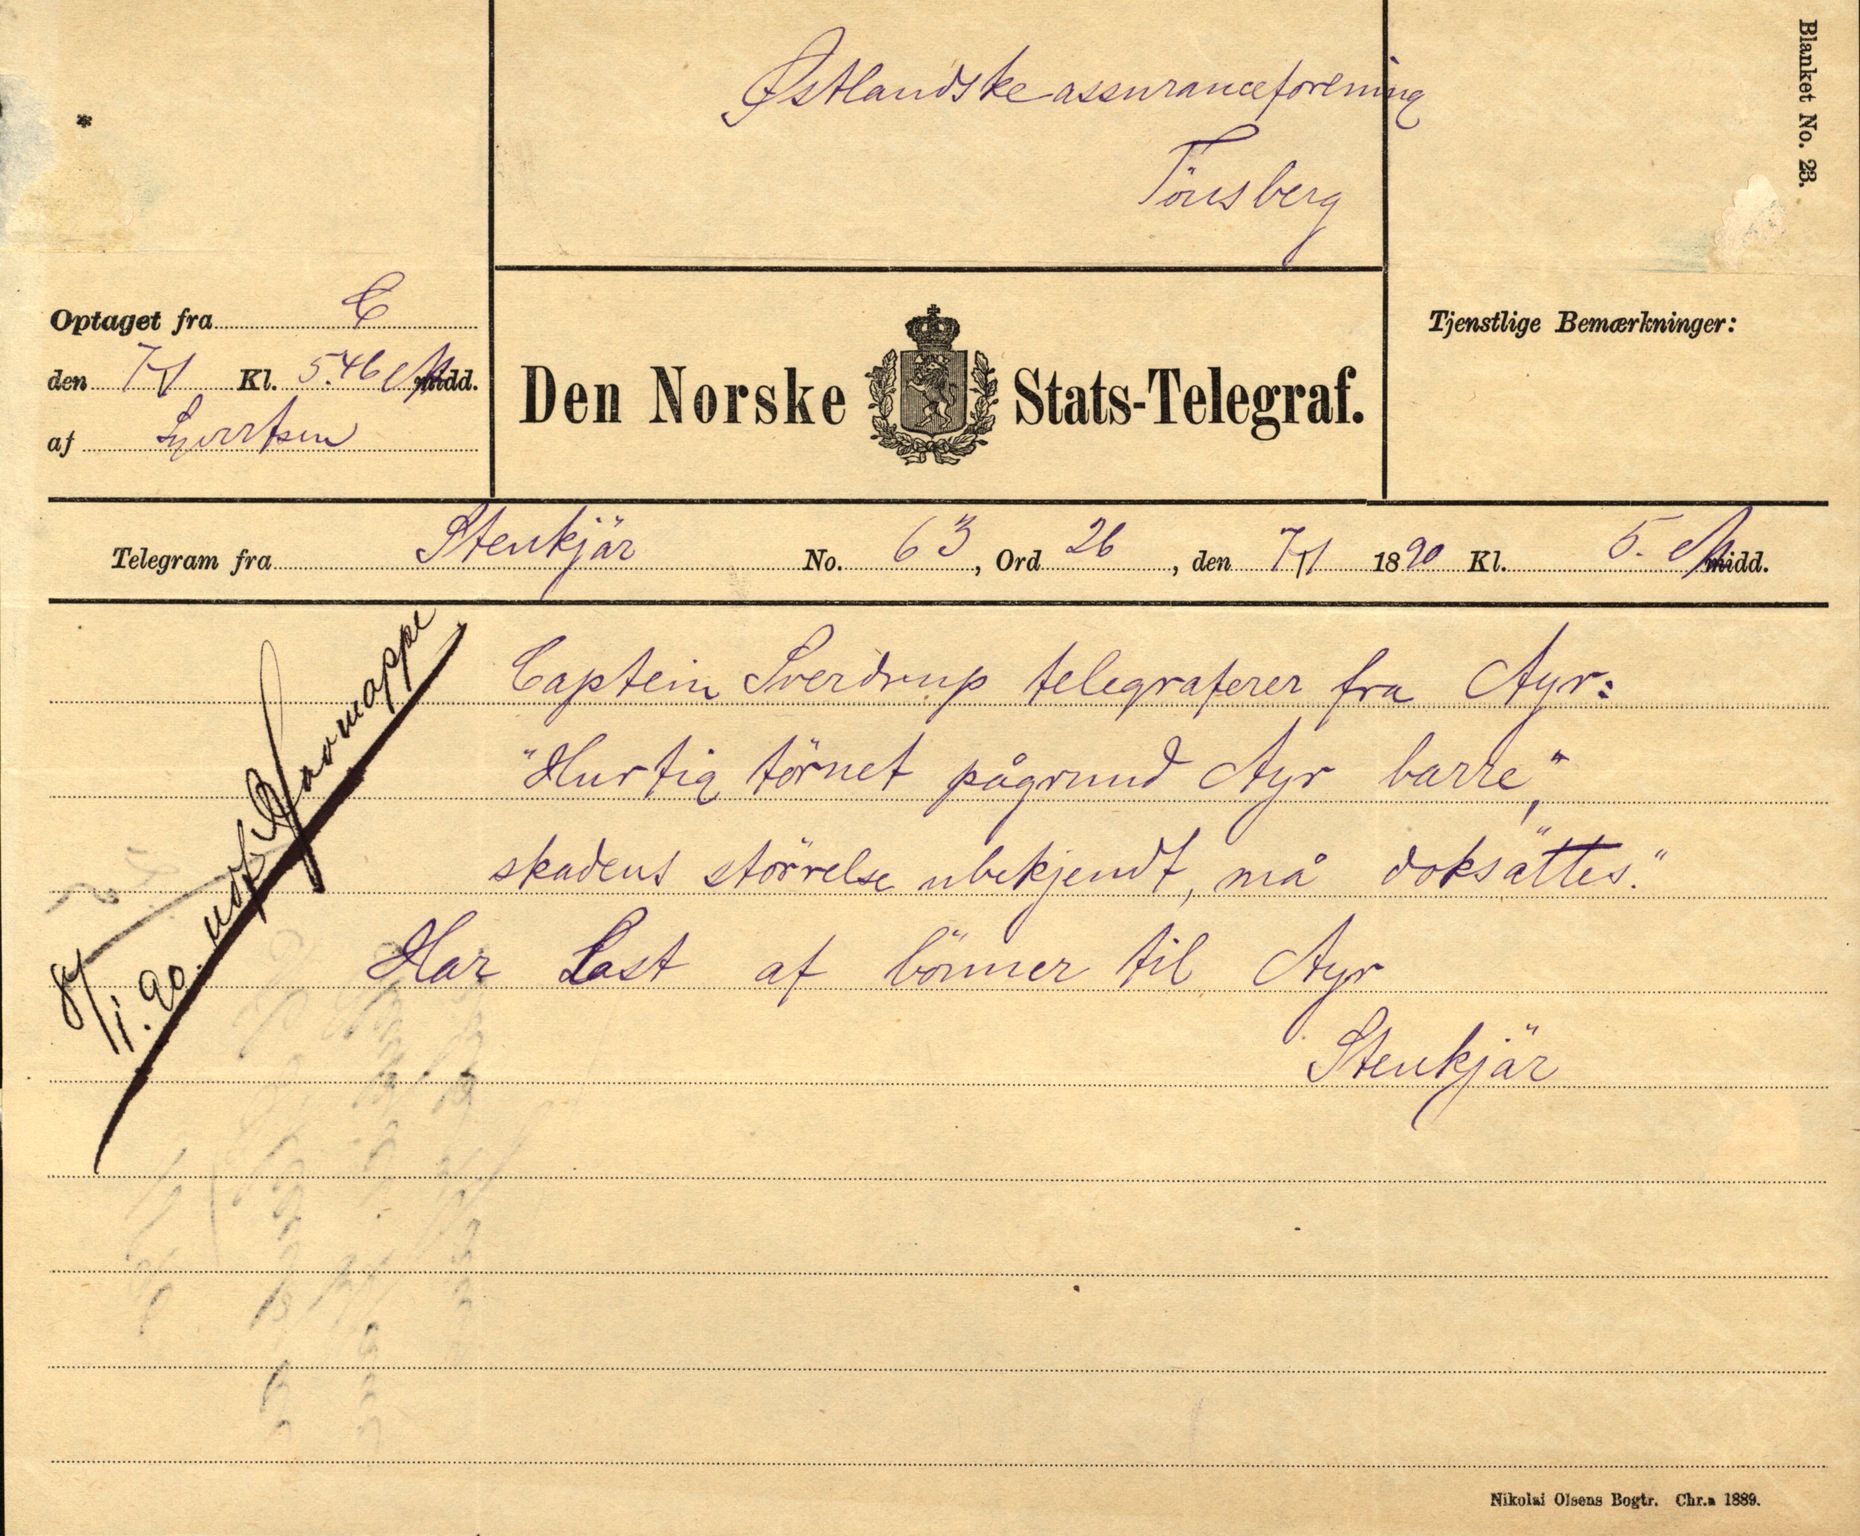 Blanket No. 23.
Østlandske assuranceforening
Tönsberg
*
Optaget fra C
den 7/1 Kl. 5.46 M midd.
af Syvertsen
Den Norske Stats-Telegraf.
Tjenstlige Bemærkninger:
Telegram fra Stenkjär No. 63, Ord 26, den 7/1 1890 Kl. 5. M midd.
Captein Sverdrup telegraferer fra Ayr:
"Hurtig törnet pågrund Ayr barre,"
skadens störrelse ubekjendt, må doksättes."
Har Last af bönner til Ayr
Stenkjär
8/1. 90.
Nikolai Olsens Bogtr. Chr.a 1889.